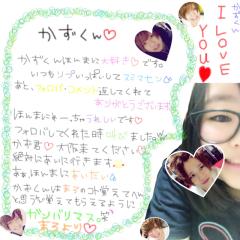 かずくん♡
I LOVE
YOU♥
かずくんほんまに大好き♡です。
いつもリプしっぱなしで
スミマセン
あと、フォロバ・コメント返してくれて
ありがとうございます
ほんまにめーっちゃうれしいです♡
フォロバしてくれた時叫びました
かず君♡大阪まできてください
絶対あいに行きます。
まぁほんまにあいたい
かずくんにはまろのコト覚えてへん
と思うけど覚えてもらえるように
ガンバリマス
まろより♡